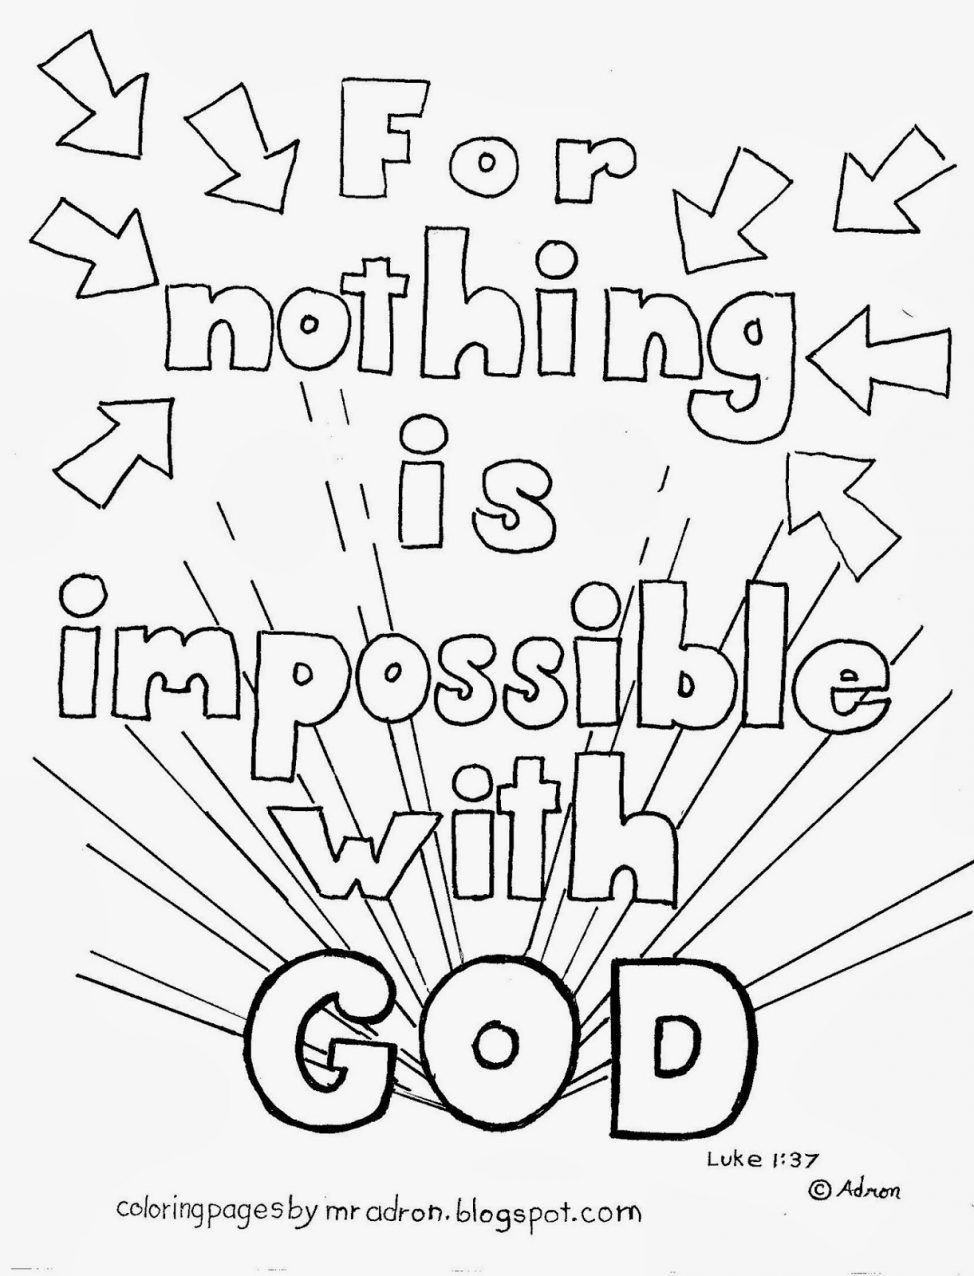 For
nothing
is
impossible
with
GOD
Luke 1:37
© Adron
coloringpagesby mradron.blogspot.com